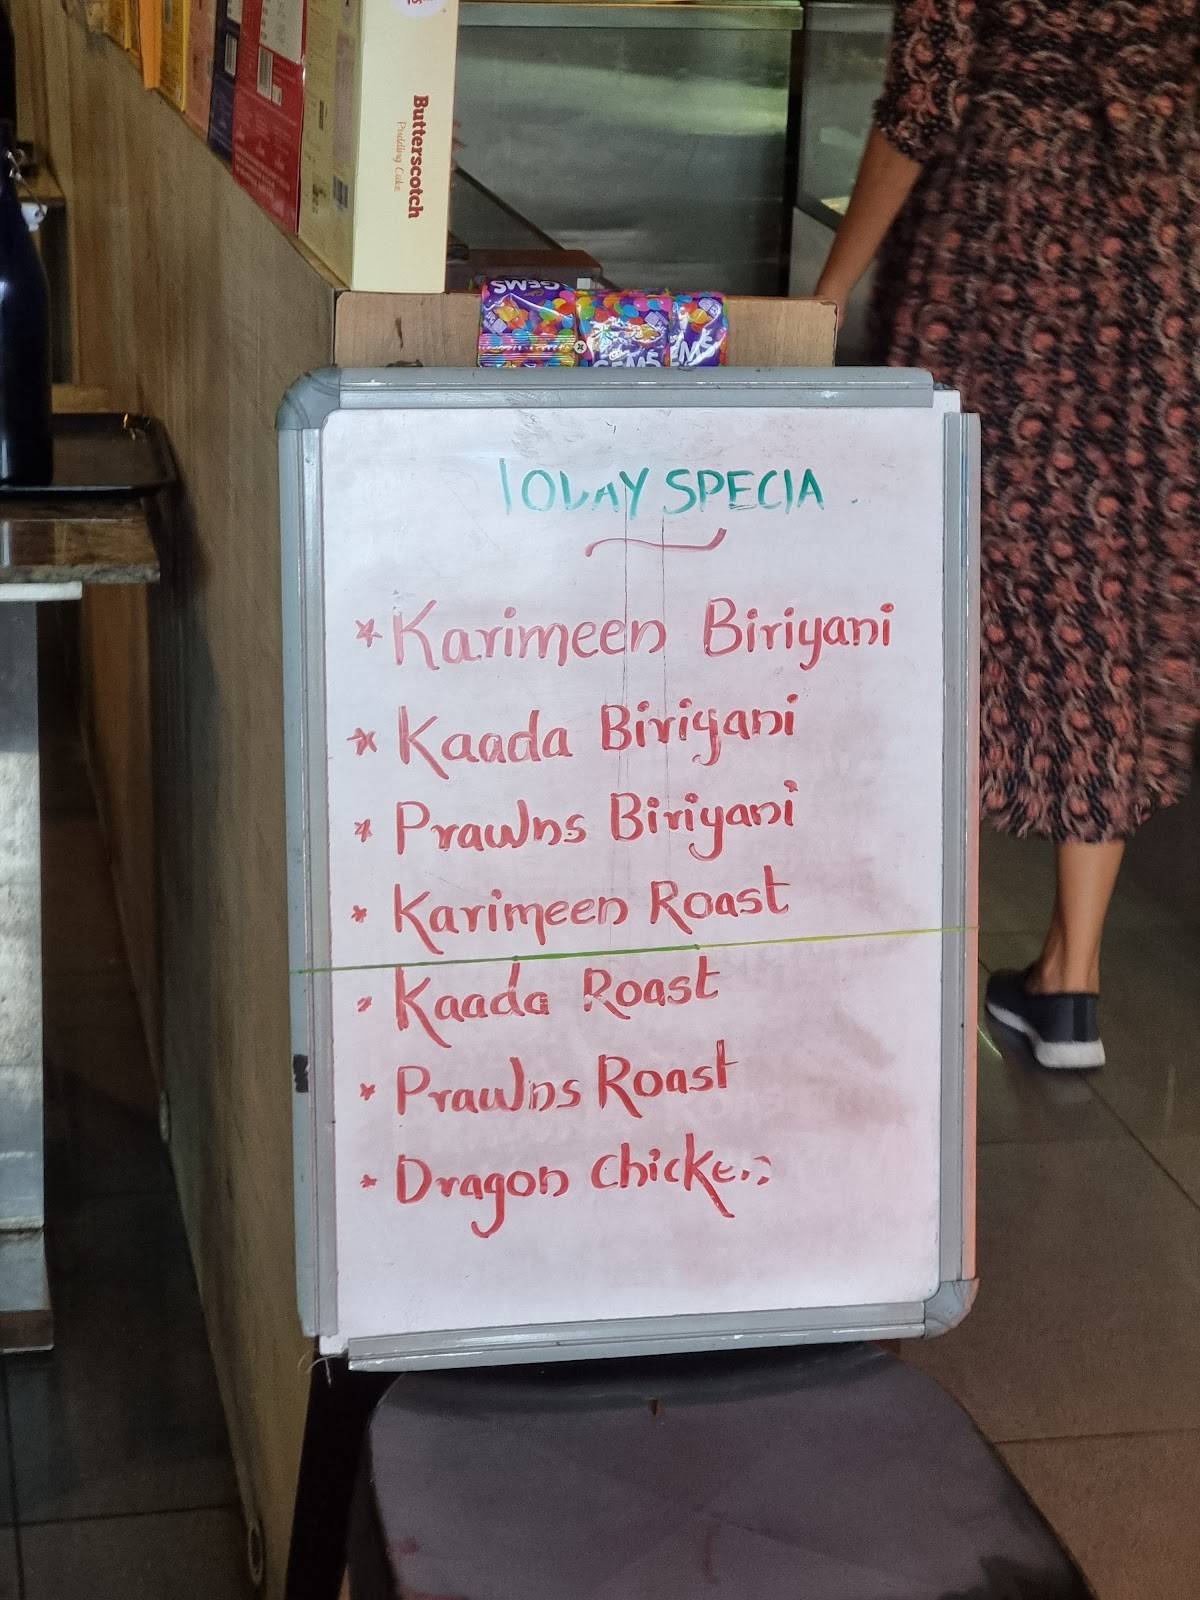 Butterscotch
Pudding Cake
GEMS
GEMS
EMS
TODAY SPECIA
* Karimeen Biriyani
* Kaada Biriyani
* Prawns Biriyani
* Karimeen Roast
* Kaada Roast
* Prawns Roast
* Dragon Chicken